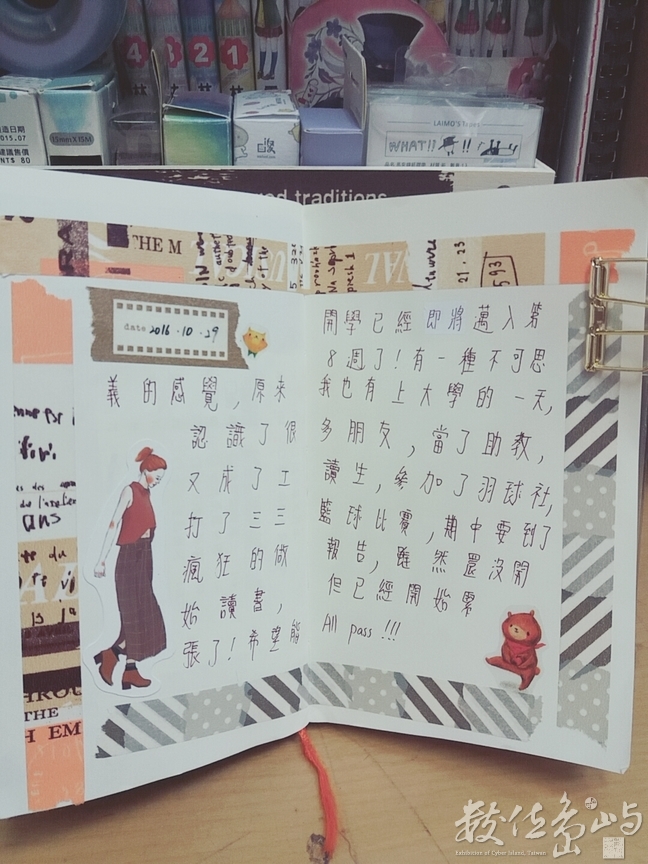 造日期
2015.07
建議售價
NT$ 80
12mmX15M
4
3
2
1
WHAT!!
traditions
THE M
date 2016.10.29
開學已經即將邁入第
8週了!有一種不可思
義的感覺,原來
我也有上大學的一天,
認識了很
多朋友,當了助教,
又成了工
讀生,參加了羽球社,
打了三三
籃球比賽,期中要到了
瘋狂的做
報告,雖然還沒開
始讀書,
但已經開始緊
張了!希望能
All pass !!!
21.23
593
ans
THE
H EM
數位島嶼
Exhibition of Cyber Island, Taiwan